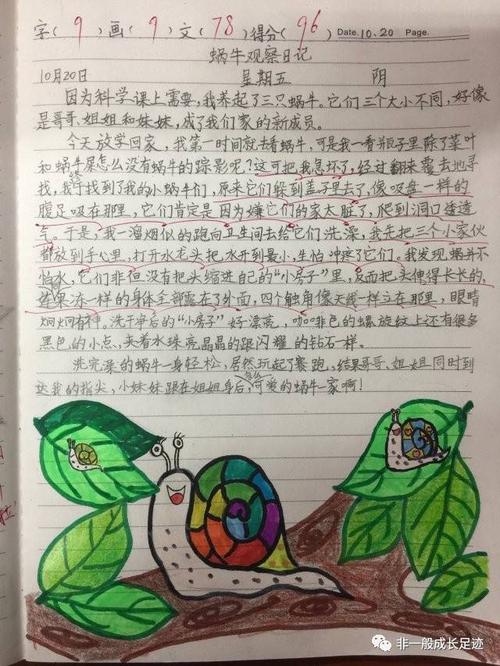 字(9)画(9)文(78)得分(96) Date.10.20
蜗牛观察日记
10月20日 星期五 阴
因为科学课上需要,我养起了三只蜗牛。它们三个大小不同,好像
是哥哥、姐姐和妹妹,成了我们家的新成员。
今天放学回家,我第一时间就去看蜗牛,可是我一看瓶子里除了菜叶
和蜗牛屎怎么没有蜗牛的踪影呢?这可把我急坏了,经过翻来覆去地寻
找,我终于找到了我的小蜗牛们,原来它们躲到盖子里去了,像吸盘一样的
腹足吸在那里,它们肯定是因为嫌它们的家太脏了,爬到洞口透透
气。于是,我一溜烟似的跑向卫生间去给它们洗澡,我先把三个小家伙
都放到手心里,打开水花头把水开到最小,生怕冲疼了它们。我发现蜗牛不
怕水,它们非但没有把头缩进自己的“小房子”里,反而把头伸得长长的,
像果冻一样的身体全部露在了外面,四个触角像天线一样立在那里,眼睛
炯炯有神。洗干净后的“小房子”好漂亮,咖啡色的螺旋纹上还有很多
黑色的小点,夹着水珠亮晶晶的跟闪耀的钻石一样。
洗完澡的蜗牛一身轻松,居然玩起了赛跑,结果哥哥、姐姐同时到
达我的指尖,小妹妹跟在姐姐身后,可爱的蜗牛家啊!
Page.
非一般成长足迹